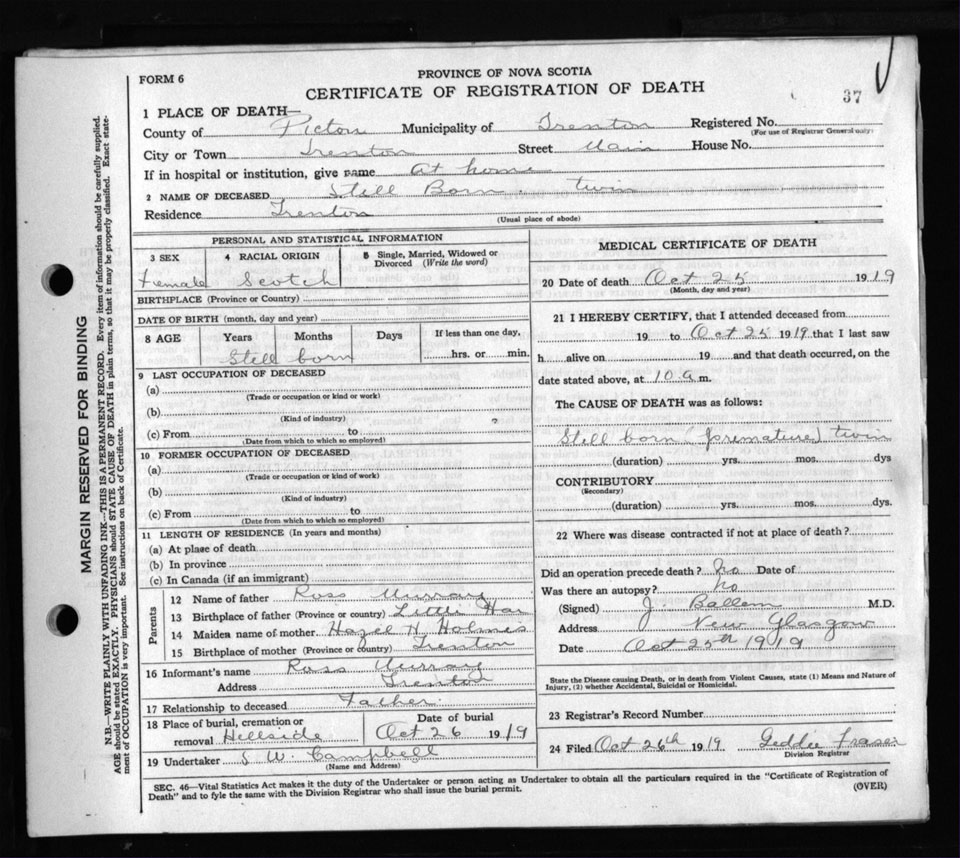 FORM 6
PROVINCE OF NOVA SCOTIA
CERTIFICATE OF REGISTRATION OF DEATH
37
1 PLACE OF DEATH—
County of Pictou Municipality of Trenton Registered No.
(For use of Registrar General only)
City or Town Trenton Street Main House No.
If in hospital or institution, give name At home
2 NAME OF DECEASED Still Born. twin
Residence Trenton
(Usual place of abode)
PERSONAL AND STATISTICAL INFORMATION
3 SEX 4 RACIAL ORIGIN 5 Single, Married, Widowed or Divorced (Write the word)
Female Scotch
BIRTHPLACE (Province or Country)
DATE OF BIRTH (month, day and year)
8 AGE Years Months Days If less than one day,
Still born hrs. or min.
9 LAST OCCUPATION OF DECEASED
(a)
(Trade or occupation or kind or work)
(b)
(Kind of industry)
(c) From to
(Date from which to which so employed)
10 FORMER OCCUPATION OF DECEASED
(a)
(Trade or occupation or kind of work)
(b)
(Kind of industry)
(c) From to
(Date from which to which so employed)
11 LENGTH OF RESIDENCE (In years and months)
(a) At place of death
(b) In province
(c) In Canada (if an immigrant)
Parents
12 Name of father Ross Murray
13 Birthplace of father (Province or country) Little Har
14 Maiden name of mother Hazel H. Holmes
15 Birthplace of mother (Province or country) Trenton
16 Informant's name Ross Murray
Address Trenton
17 Relationship to deceased Father.
18 Place of burial, cremation or removal Hillside
Date of burial
Oct 26 1919
19 Undertaker S W. Campbell
(Name and Address)
MEDICAL CERTIFICATE OF DEATH
20 Date of death Oct 25 1919
(Month, day and year)
21 I HEREBY CERTIFY, that I attended deceased from
19 to Oct 25 1919 that I last saw
h alive on 19 and that death occurred, on the
date stated above, at 10 a m.
The CAUSE OF DEATH was as follows:
Still born (premature) twin
(duration) yrs. mos. dys
CONTRIBUTORY
(Secondary)
(duration) yrs. mos. dys.
22 Where was disease contracted if not at place of death?
Did an operation precede death? No Date of
Was there an autopsy? No
(Signed) J. Ballem M.D.
Address New Glasgow
Date Oct 25th 1919
State the Disease causing Death, or in death from Violent Causes, state (1) Means and Nature of
Injury, (2) whether Accidental, Suicidal or Homicidal.
23 Registrar's Record Number
24 Filed Oct 26th 1919 Geddie Fraser
Division Registrar
SEC. 46—Vital Statistics Act makes it the duty of the Undertaker or person acting as Undertaker to obtain all the particulars required in the "Certificate of Registration of
Death" and to fyle the same with the Division Registrar who shall issue the burial permit. (OVER)
MARGIN RESERVED FOR BINDING
N.B.—WRITE PLAINLY WITH UNFADING INK—THIS IS A PERMANENT RECORD. Every item of information should be carefully supplied.
AGE should be stated EXACTLY. PHYSICIANS should STATE CAUSE OF DEATH in plain terms, so that it may be properly classified. Exact state-
ment of OCCUPATION is very important. See instructions on back of Certificate.